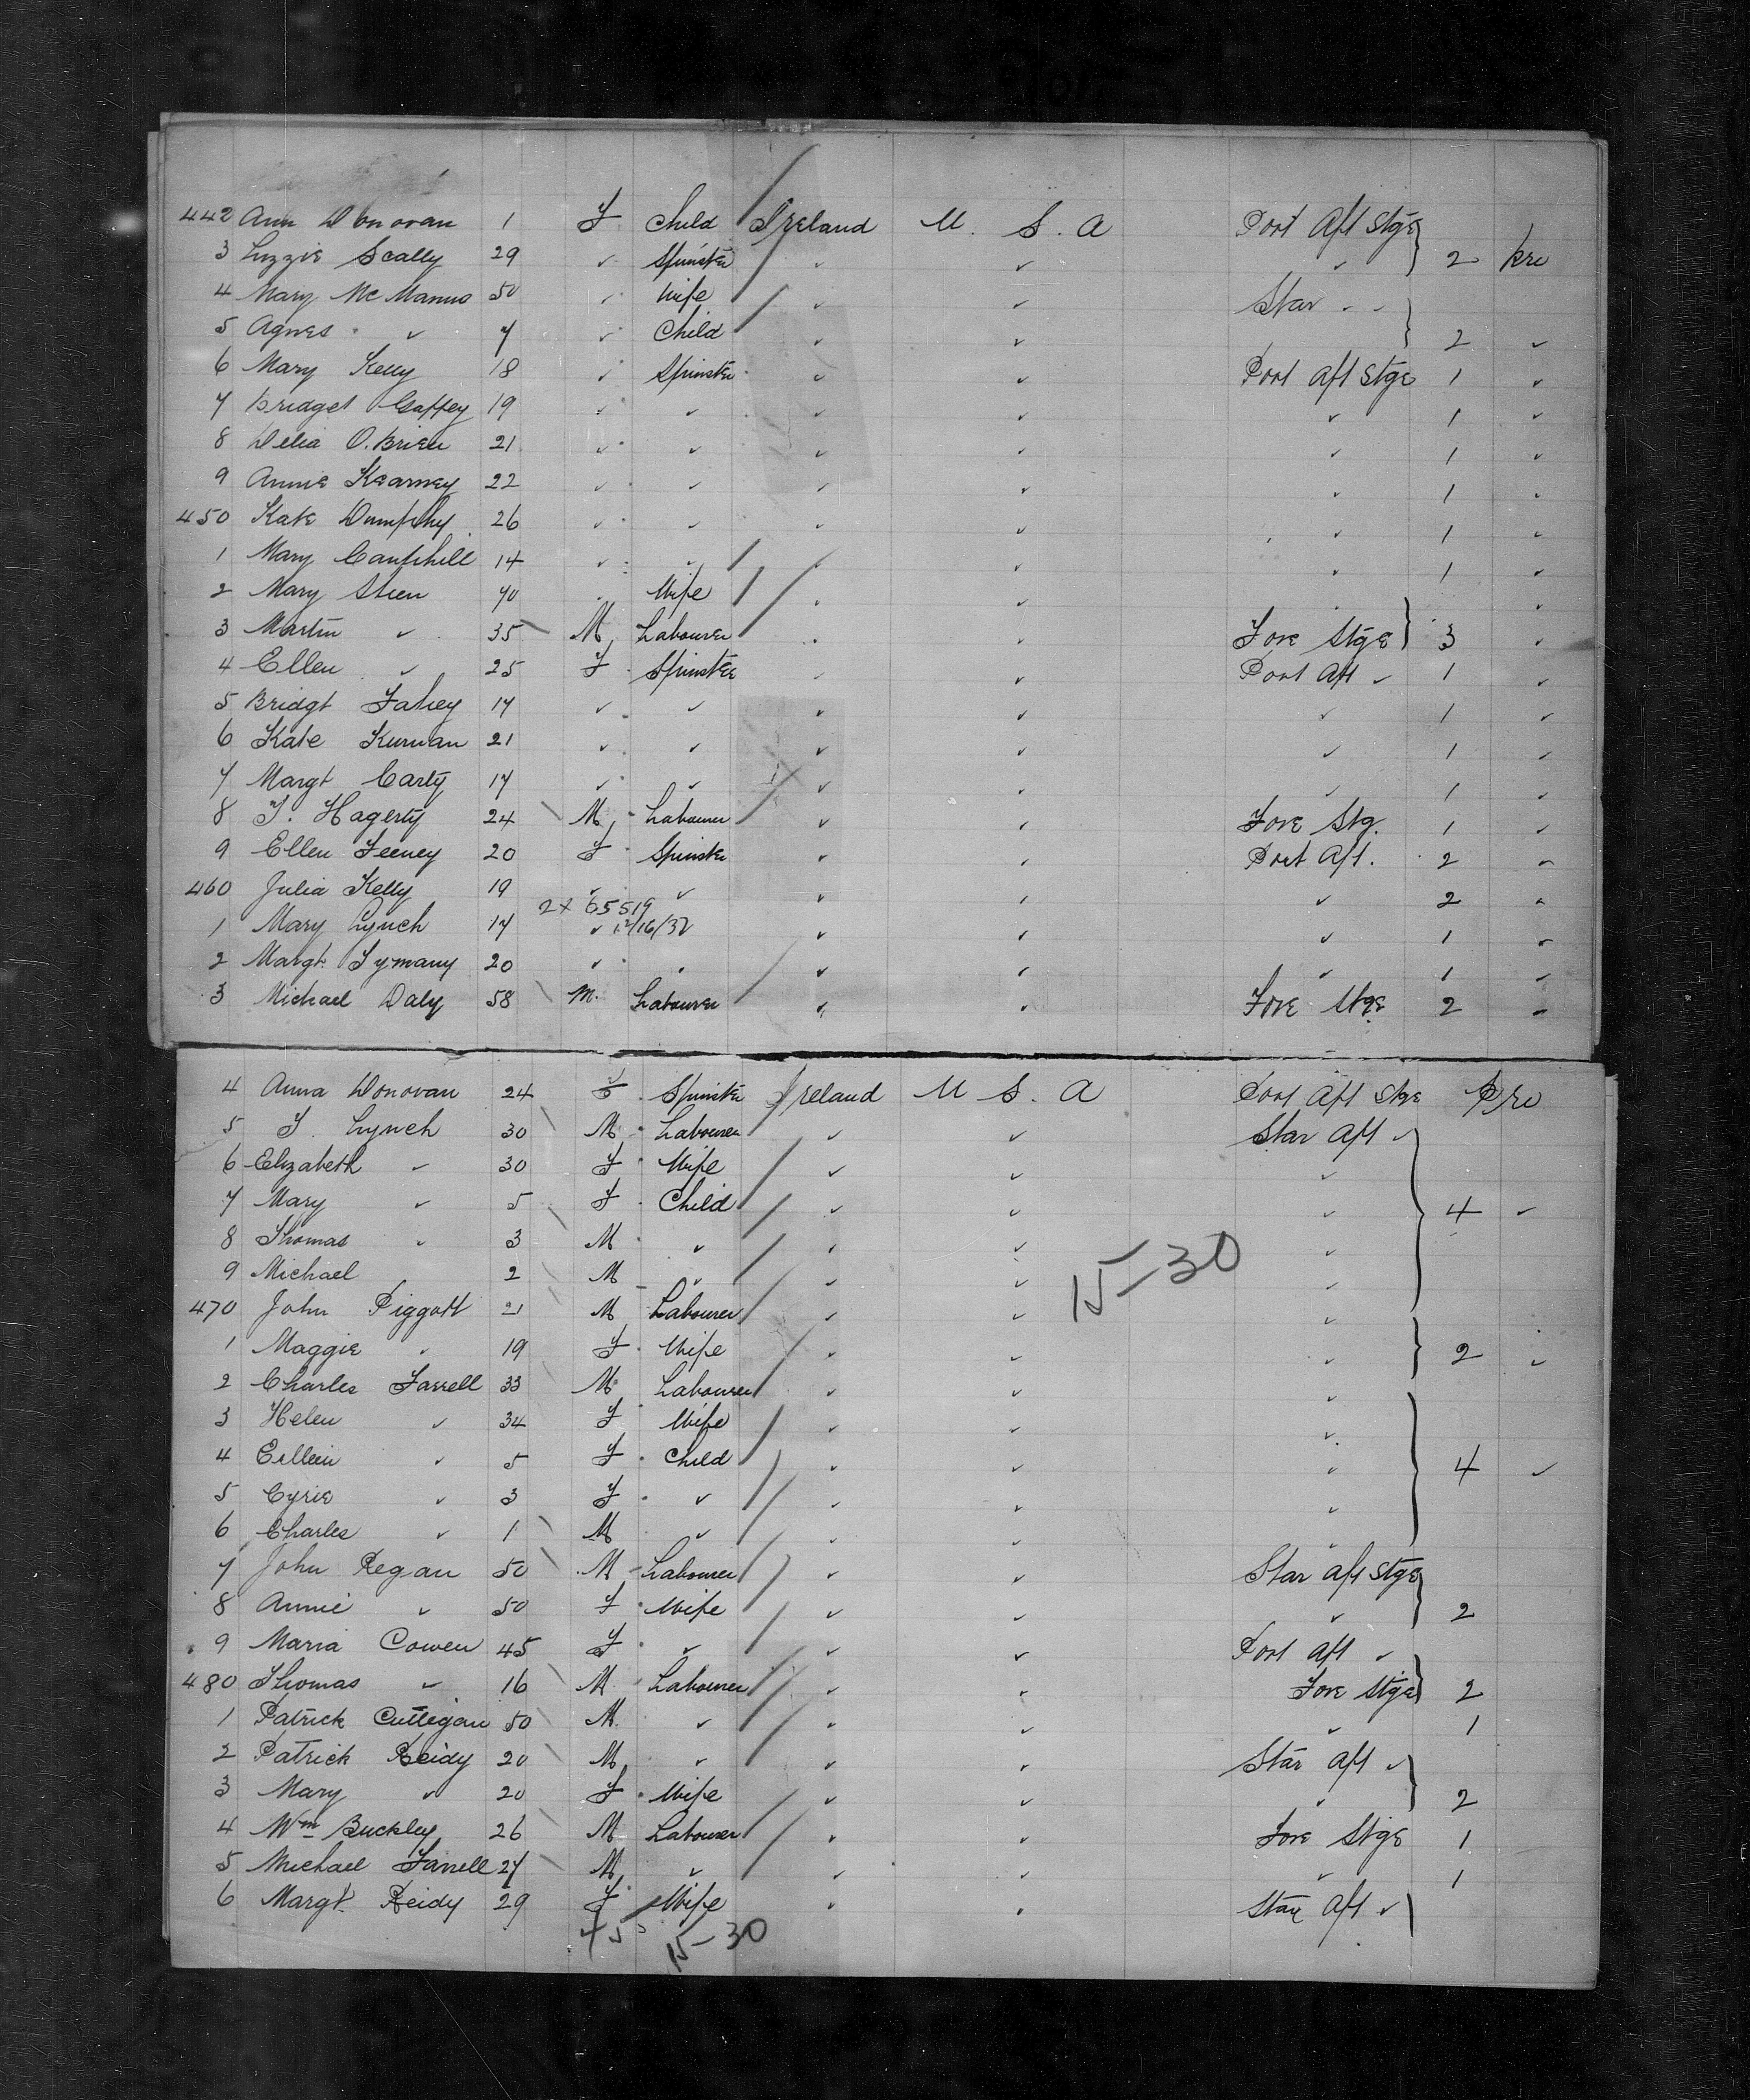 442 Ann Donovan 1 F Child Ireland U. S. A Port Aft Stge
3 Lizzie Scally 29 ✓ Spinster ✓ ✓ ✓ 2 pce
4 Mary McManus 50 ✓ Wife ✓ ✓ Star " "
5 Agnes ✓ 7 ✓ Child ✓ ✓ 2 ✓
6 Mary Kelly 18 ✓ Spinster ✓ ✓ Port Aft Stge 1 ✓
7 Bridget Gaffey 19 ✓ ✓ ✓ ✓ ✓ 1 ✓
8 Delia O.Brien 21 ✓ ✓ ✓ ✓ ✓ 1 ✓
9 Annie Kearney 22 ✓ ✓ ✓ ✓ ✓ 1 ✓
450 Kate Dumphy 26 ✓ ✓ ✓ ✓ ✓ 1 ✓
1 Mary Camphill 14 ✓ ✓ ✓ ✓ ✓ 1 ✓
2 Mary Steen 40 Wife ✓ ✓ ✓
3 Martin ✓ 35 M Labourer ✓ ✓ Fore Stge 3 ✓
4 Ellen ✓ 25 F Spinster ✓ ✓ Port Aft ✓ 1 ✓
5 Bridgt Fahey 17 ✓ ✓ ✓ ✓ ✓ 1 ✓
6 Kate Kurwan 21 ✓ ✓ ✓ ✓ ✓ 1 ✓
7 Margt Carty 17 ✓ ✓ ✓ ✓ ✓ 1 ✓
8 T. Hagerty 24 M Labourer ✓ ✓ Fore Stg. 1 ✓
9 Ellen Feeney 20 F Spinster ✓ ✓ Port Aft. 2 ✓
460 Julia Kelly 19 ✓ ✓ ✓ ✓ ✓ 2 ✓
2X 65519
1 Mary Lynch 17 ✓ 12/16/32 ✓ ✓ ✓ 1 ✓
2 Margt. Tymany 20 ✓ ✓ ✓ ✓ ✓ 1 ✓
3 Michael Daly 58 M. Labourer ✓ ✓ Fore Stge 2 ✓
4 Anna Donovan 24 F Spinster Ireland U S. A Port Aft Stge pce
5 T. Lynch 30 M Labourer ✓ ✓ Star Aft ✓
6 Elizabeth ✓ 30 F Wife ✓ ✓ ✓
7 Mary ✓ 5 F Child ✓ ✓ ✓ 4 ✓
8 Thomas ✓ 3 M ✓ ✓ ✓ ✓
9 Michael 2 M ✓ ✓ ✓ 15-30 ✓
470 John Piggott 21 M Labourer ✓ ✓ ✓
1 Maggie ✓ 19 F Wife ✓ ✓ ✓ 2 ✓
2 Charles Farrell 33 M Labourer ✓ ✓ ✓
3 Helen ✓ 34 F Wife ✓ ✓ ✓
4 Eilleen ✓ 5 F Child ✓ ✓ ✓ 4 ✓
5 Cyrie ✓ 3 F ✓ ✓ ✓ ✓
6 Charles ✓ 1 M ✓ ✓ ✓ ✓
7 John Regan 50 M Labourer ✓ ✓ Star Aft Stge
8 Annie ✓ 50 F Wife ✓ ✓ ✓ 2
9 Maria Cowen 45 F ✓ ✓ ✓ Port Aft ✓
480 Thomas ✓ 16 M Labourer ✓ ✓ Fore Stge 2
1 Patrick Cuttegan 50 M. ✓ ✓ ✓ ✓ 1
2 Patrick Reidy 20 M ✓ ✓ ✓ Star Aft ✓
3 Mary ✓ 20 F Wife ✓ ✓ ✓ 2
4 Wm Buckley 26 M Labourer ✓ ✓ Fore Stge 1
5 Michael Farrell 27 M ✓ ✓ ✓ ✓ 1
6 Margt. Reidy 29 F Wife ✓ ✓ Star Aft ✓
15-30